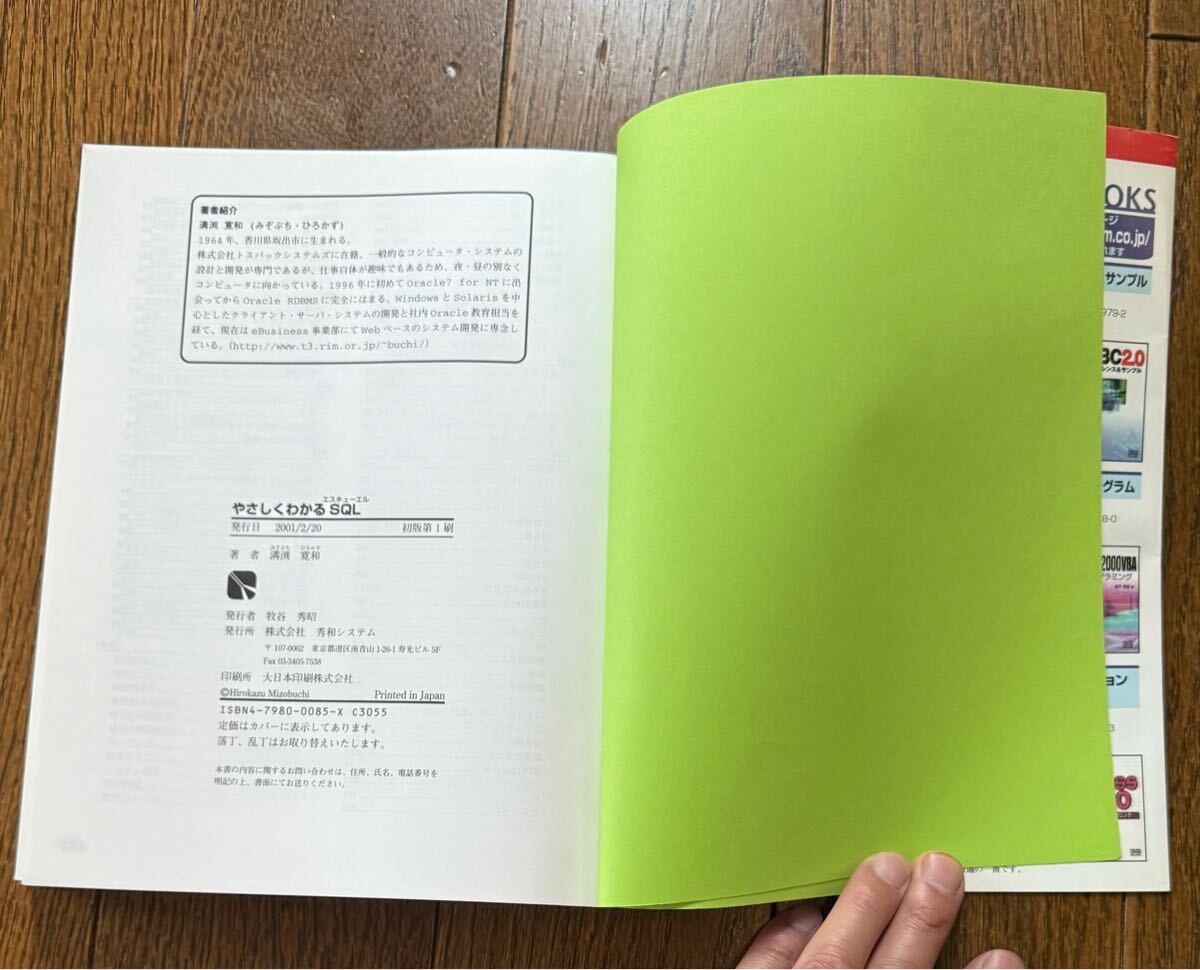 著者紹介
溝渕 寛和 (みぞぶち・ひろかず)
1964年、香川県坂出市に生まれる。
株式会社トスバックシステムズに在籍。一般的なコンピュータ・システムの
設計と開発が専門であるが、仕事自体が趣味でもあるため、夜・昼の別なく
コンピュータに向かっている。1996年に初めてOracle7 for NTに出
会ってからOracle RDBMSに完全にはまる。WindowsとSolarisを中
心としたクライアント・サーバ・システムの開発と社内Oracle教育担当を
経て、現在はeBusiness事業部にてWebベースのシステム開発に専念し
ている。(http://www.t3.rim.or.jp/~buchi/)
エスキューエル
やさしくわかるSQL
発行日 2001/2/20 初版第1刷
みぞぶち ひろかず
著 者 溝渕 寛和
発行者 牧谷 秀昭
発行所 株式会社 秀和システム
〒107-0062 東京都港区南青山1-26-1 寿光ビル5F
Fax 03-3405-7538
印刷所 大日本印刷株式会社
©Hirokazu Mizobuchi Printed in Japan
ISBN4-7980-0085-X C3055
定価はカバーに表示してあります。
落丁、乱丁はお取り替えいたします。
本書の内容に関するお問い合わせは、住所、氏名、電話番号を
明記の上、書面にてお送りください。
OKS
ージ
m.co.jp/
れます
サンプル
979-2
BC2.0
レンス&サンプル
グラム
8-0
2000VBA
グラミング
ョン
3
SS
0
ニック
の一冊です。